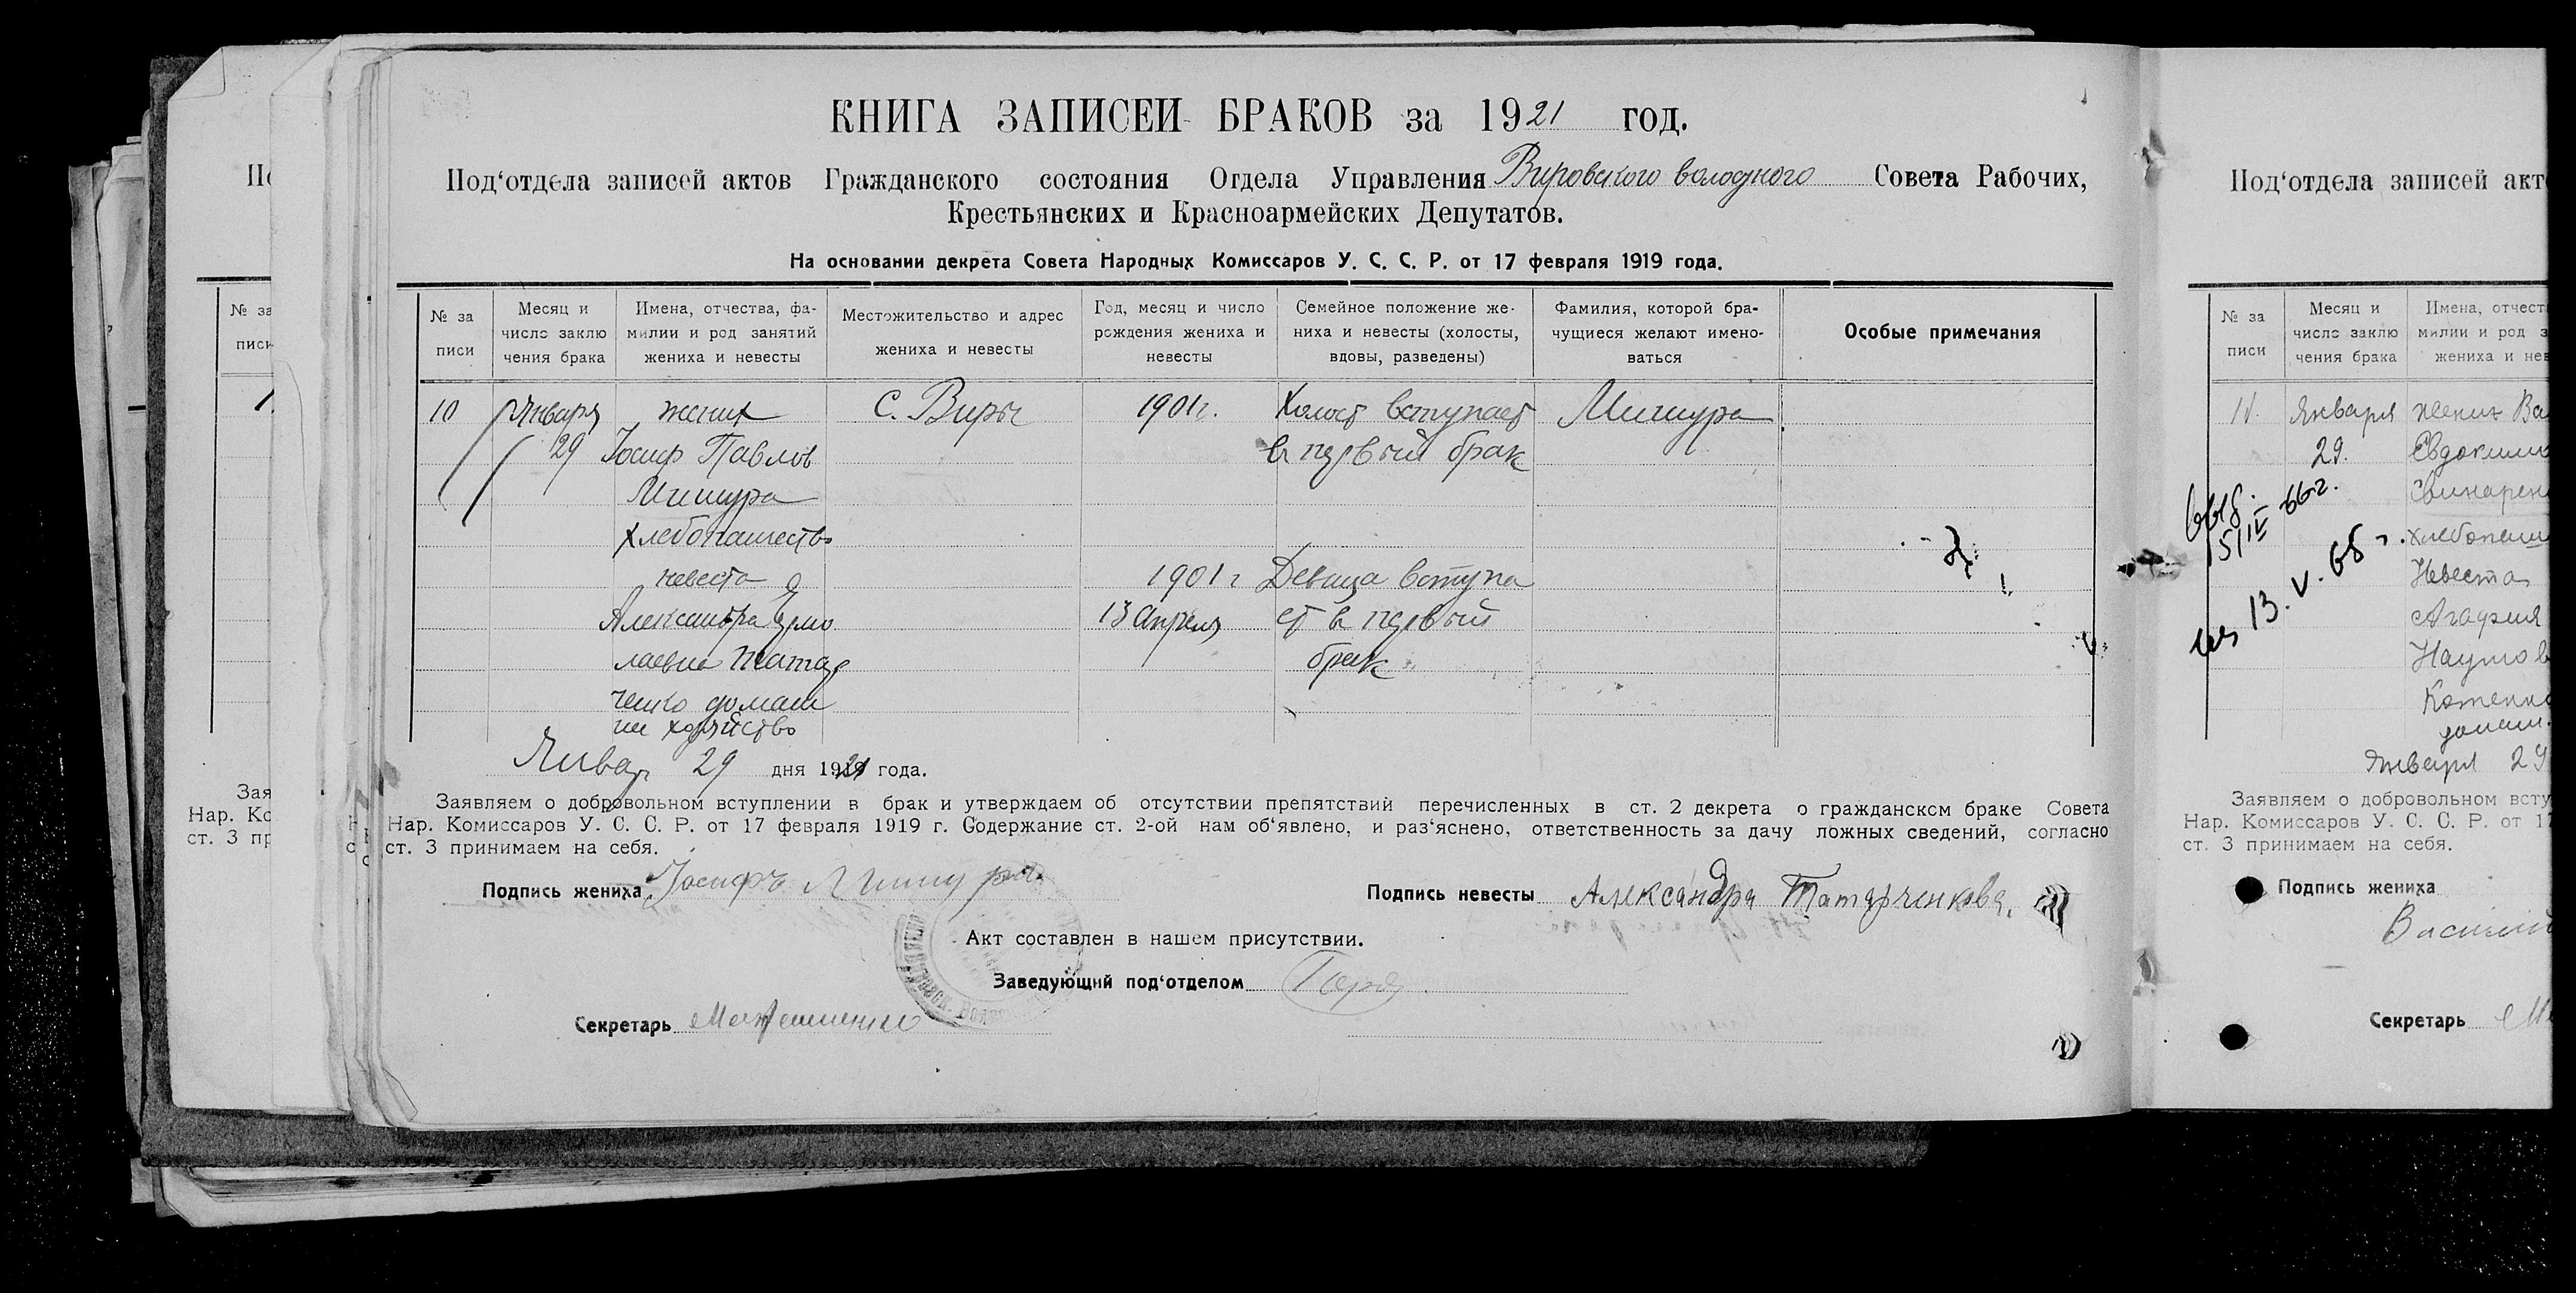 КНИГА ЗАПИСЕИ БРАКОВ за 1921 год.
Под‘отдела записей актов Гражданского состояния Отдела Управления Вировского волосного Совета Рабочих,
Крестьянских и Красноармейских Депутатов.
На основании декрета Совета Народных Комиссаров У. С. С. Р. от 17 февраля 1919 года.
№ за
писи
Месяц и
число заклю
чения брака
Имена, отчества, фа-
милии и род занятий
жениха и невесты
Местожительство и адрес
жениха и невесты
Год, месяц и число
рождения жениха и
невесты
Семейное положение же-
ниха и невесты (холосты,
вдовы, разведены)
Фамилия, которой бра-
чущиеся желают имено-
ваться
Особые примечания
10
Января
29
жених
Іосиф Павлов
Мишура
хлебопашество
невеста
Александра Ермо
лаевна Татар
ченко домаш
ни хозяйство
С. Виры
1901г.
1901 г
13 Апреля
Холост вступает
в первый брак
Девица вступа
ет в первый
брак
Мишура
Январ 29 дня 1921 года.
Заявляем о добровольном вступлении в брак и утверждаем об отсутствии препятствий перечисленных в ст. 2 декрета о гражданском браке Совета
Нар. Комиссаров У. С. С. Р. от 17 февраля 1919 г. Содержание ст. 2-ой нам об‘явлено, и раз‘яснено, ответственность за дачу ложных сведений, согласно
ст. 3 принимаем на себя.
Подпись жениха Іосифъ Мишура
Подпись невесты Александра Татарченкова.
Акт составлен в нашем присутствии.
Заведующий под‘отделом
Секретарь
Под‘отдела записей акт
№ за
писи
Месяц и
число заклю
чения брака
Имена, отчест
милии и род з
жениха и нев
11.
Января
29.
жених Ва
Евдоким
Свинарен
хлебопаш
Невеста
Агафия
Наумов
Котенко
домаш.
15/IV 66г.
13. V. 68 г.
Января 29
Заявляем о добровольном всту
Нар. Комиссаров У. С. С. Р. от 17
ст. 3 принимаем на себя.
Подпись жениха
Василий
Секретарь
№ за
писи
Зая
Нар. Ко
ст. 3 пр